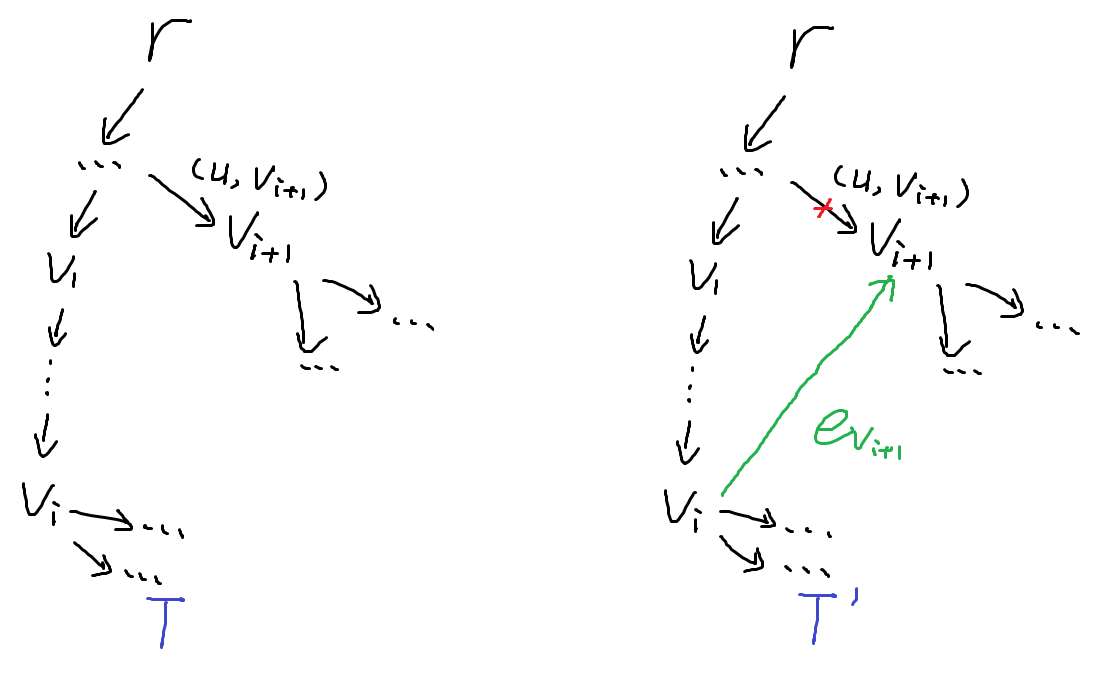 r
...
(u, Vi+1)
Vi+1
V1
...
...
⋮
Vi
...
...
T
r
...
(u, Vi+1)
Vi+1
V1
...
...
⋮
eVi+1
Vi
...
...
T'